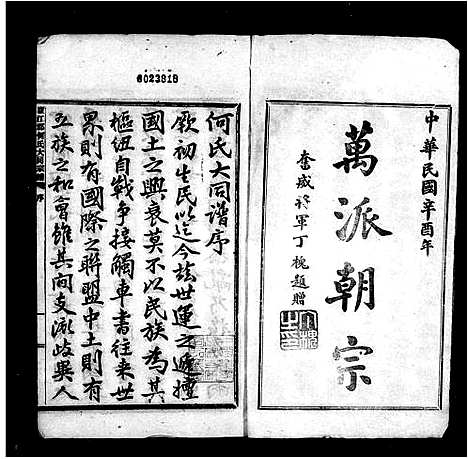 中華民國辛酉年
萬派朝宗
奮威將軍丁槐題贈
6023818
何氏大同譜序
厥初生民以迄今茲世運之遞嬗
國土之興衰莫不以民族為其
樞紐自戰爭接觸車書往來世
界則有國際之聯盟中土則有
五族之和會雖其向支源歧異人